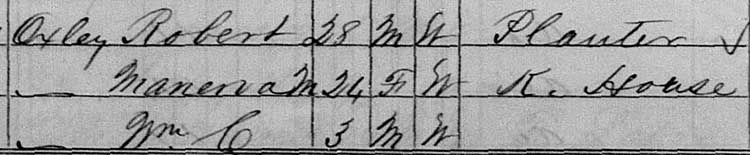 Oxley Robert 28 M W Planter ✓
— Manerva M 24 F W K. House
— Wm. C 3 M W